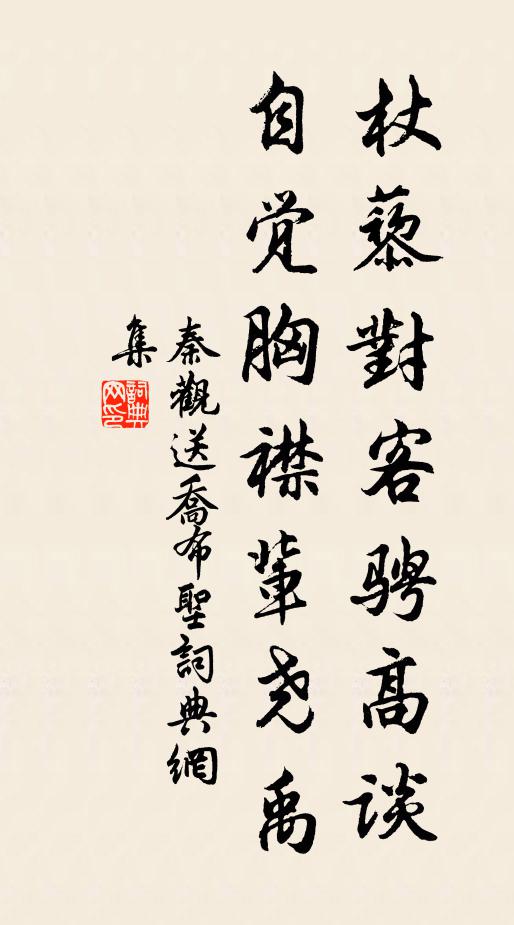 杖藜對客骋高谈
自觉胸襟輩尧禹
秦觀送喬希聖詞典網
集
詞典网印